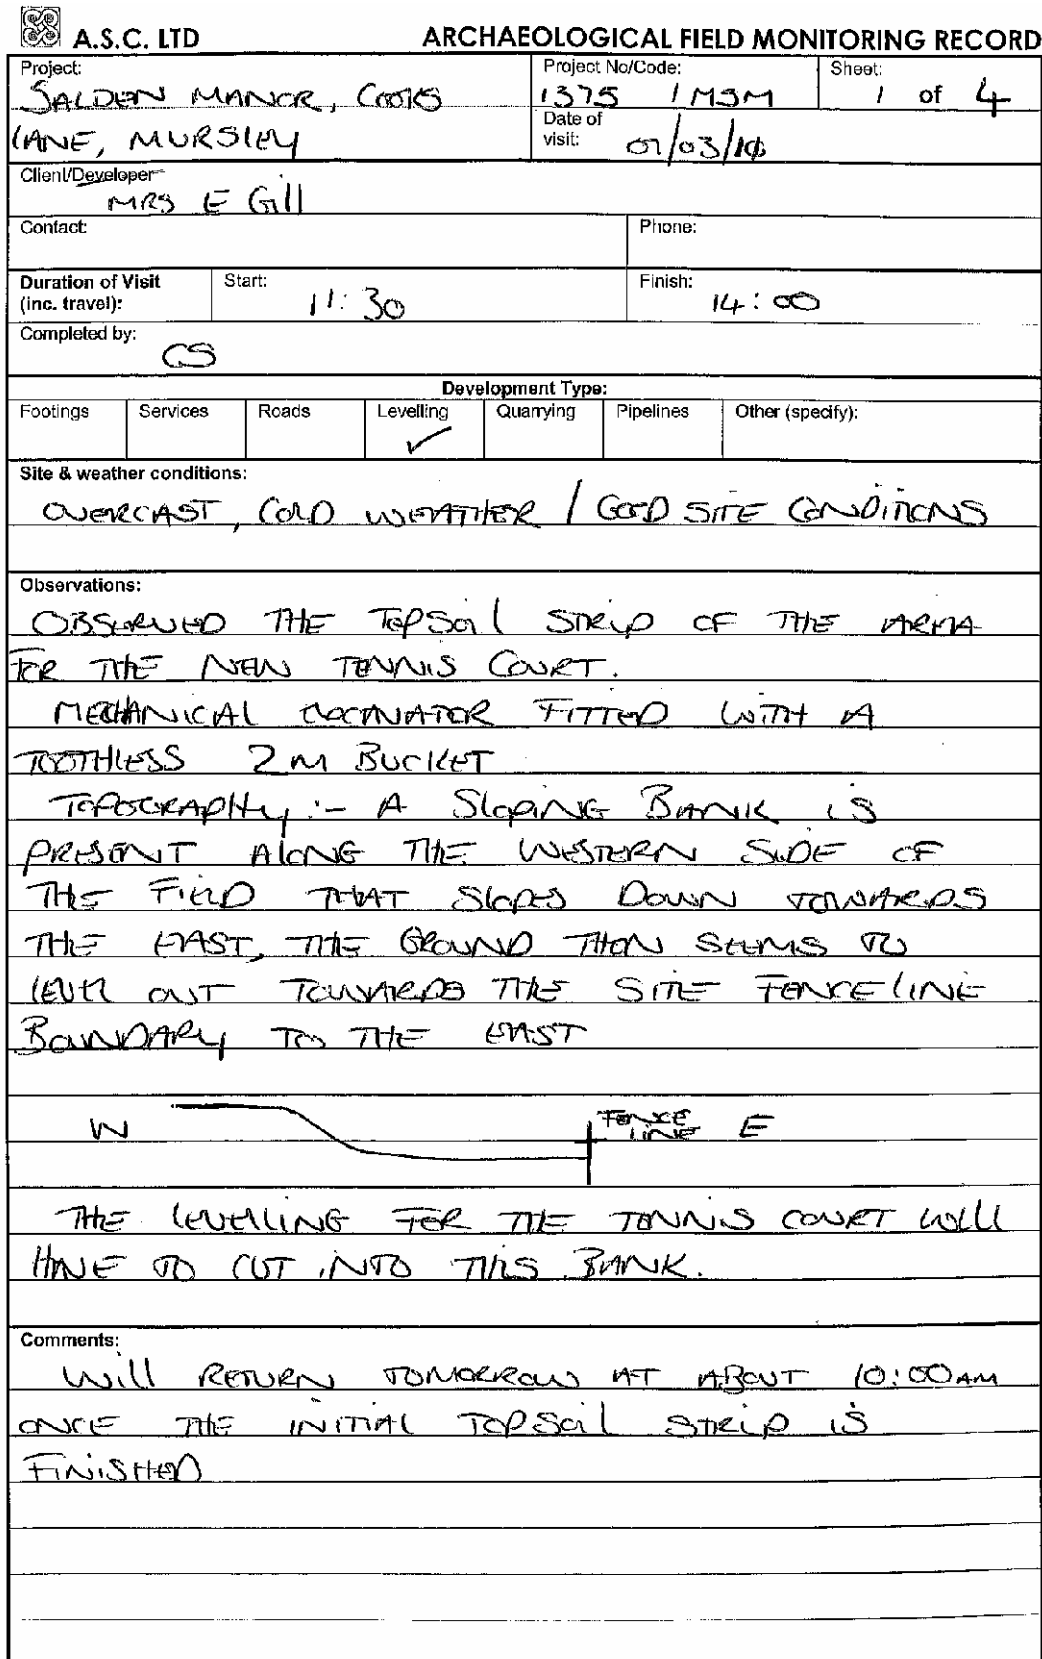 A.S.C. LTD ARCHAEOLOGICAL FIELD MONITORING RECORD
Project: Project No/Code: Sheet:
SALDEN MANOR, COOKS 1375 / MSM 1 of 4
LANE, MURSLEY Date of visit: /03/10
Client/Developer
MRS E Gill
Contact: Phone:
Duration of Visit (inc. travel): Start: 11:30 Finish: 14:00
Completed by:
CS
Development Type:
Footings Services Roads Levelling Quarrying Pipelines Other (specify):
✓
Site & weather conditions:
OVERCAST, COLD WEATHER / GOOD SITE CONDITIONS
Observations:
OBSERVED THE TOPSOIL STRIP OF THE AREA
FOR THE NEW TENNIS COURT.
MECHANICAL EXCAVATOR FITTED WITH A
TOOTHLESS 2M BUCKET
TOPOGRAPHY :- A SLOPING BANK IS
PRESENT ALONG THE WESTERN SIDE OF
THE FIELD THAT SLOPES DOWN TOWARDS
THE EAST, THE GROUND THEN SEEMS TO
LEVEL OUT TOWARDS THE SITE FENCELINE
BOUNDARY TO THE EAST
W FENCE LINE E
THE LEVELLING FOR THE TENNIS COURT WILL
HAVE TO CUT INTO THIS BANK.
Comments:
WILL RETURN TOMORROW AT ABOUT 10:00AM
ONCE THE INITIAL TOPSOIL STRIP IS
FINISHED